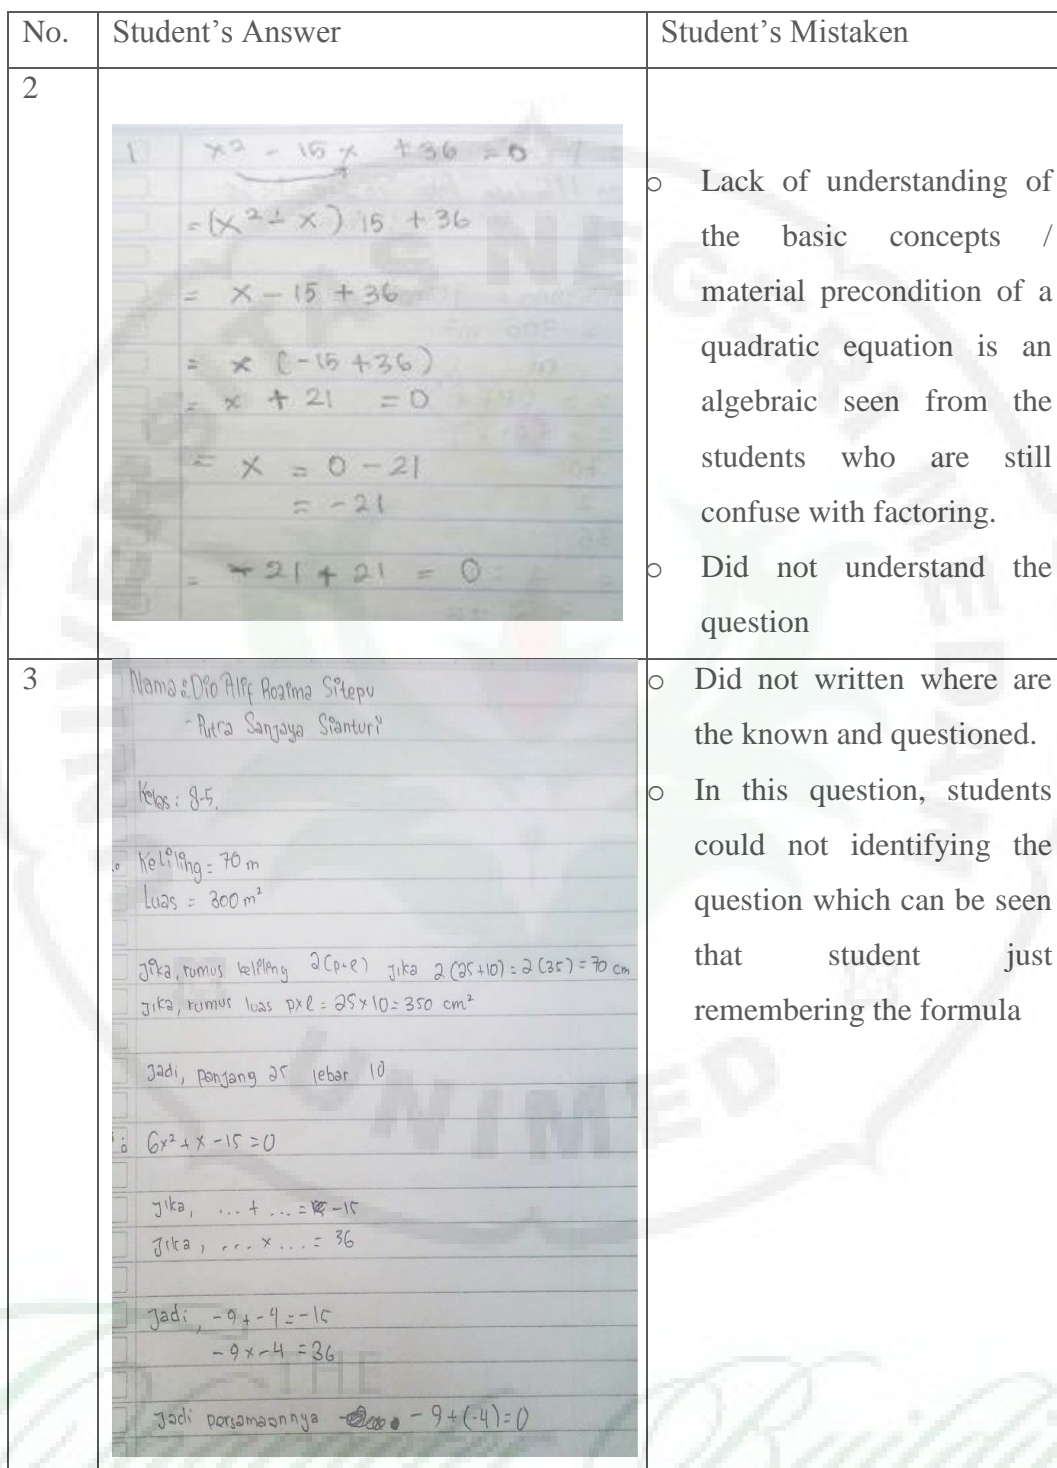 No.
Student's Answer
Student's Mistaken
2
1 x² - 15x + 36 = 0
= (x² - x) 15 + 36
= x - 15 + 36
= x (-15 + 36)
= x + 21 = 0
= x = 0 - 21
= -21
= -21 + 21 = 0
o Lack of understanding of
the basic concepts /
material precondition of a
quadratic equation is an
algebraic seen from the
students who are still
confuse with factoring.
o Did not understand the
question
3
Nama : Dio Alif Roaima Sitepu
- Putra Sanjaya Sianturi
Kelas : 8-5.
Keliling = 70 m
Luas = 300 m²
Jika, rumus keliling 2(p+l) jika 2(25+10) = 2(35) = 70 cm
Jika, rumus luas p×l = 25×10 = 350 cm²
Jadi, panjang 25 lebar 10
6x² + x - 15 = 0
Jika, ... + ... = -15
Jika, ... × ... = 36
Jadi, -9 + -4 = -15
-9 × -4 = 36
Jadi persamaannya -9+(-4)=0
o Did not written where are
the known and questioned.
o In this question, students
could not identifying the
question which can be seen
that student just
remembering the formula
UNIVERSITAS NEGERI MEDAN
UNIMED
THE
Building